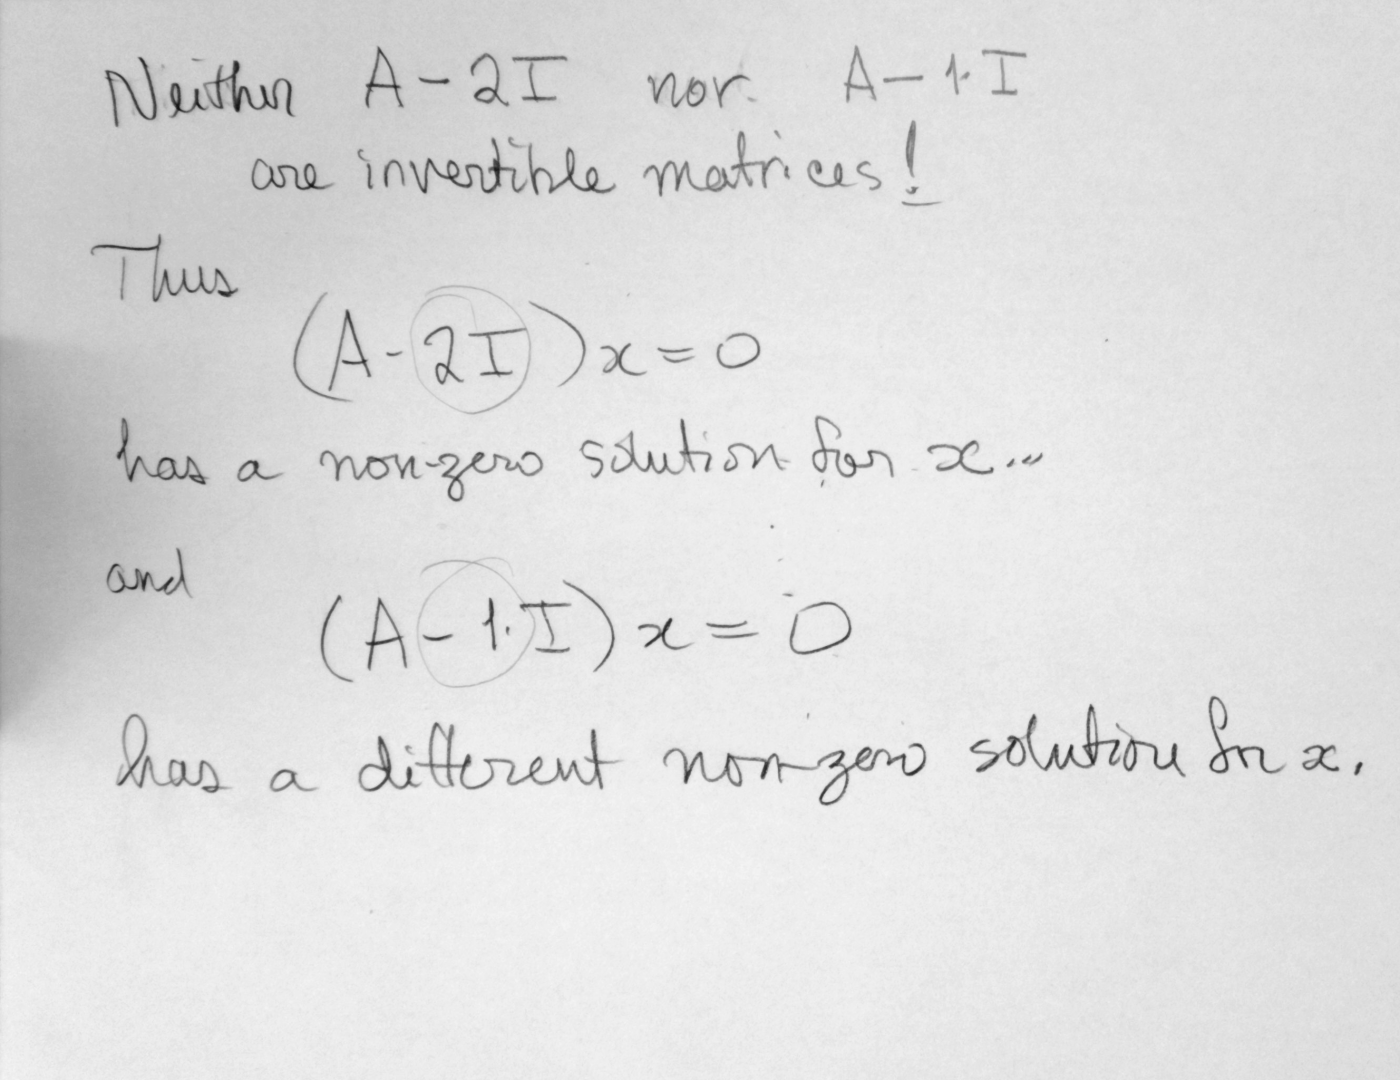 Neither A - 2I nor A - 1·I
are invertible matrices!
Thus
(A - 2I)x = 0
has a non-zero solution for x...
and
(A - 1·I)x = 0
has a different non-zero solution for x.